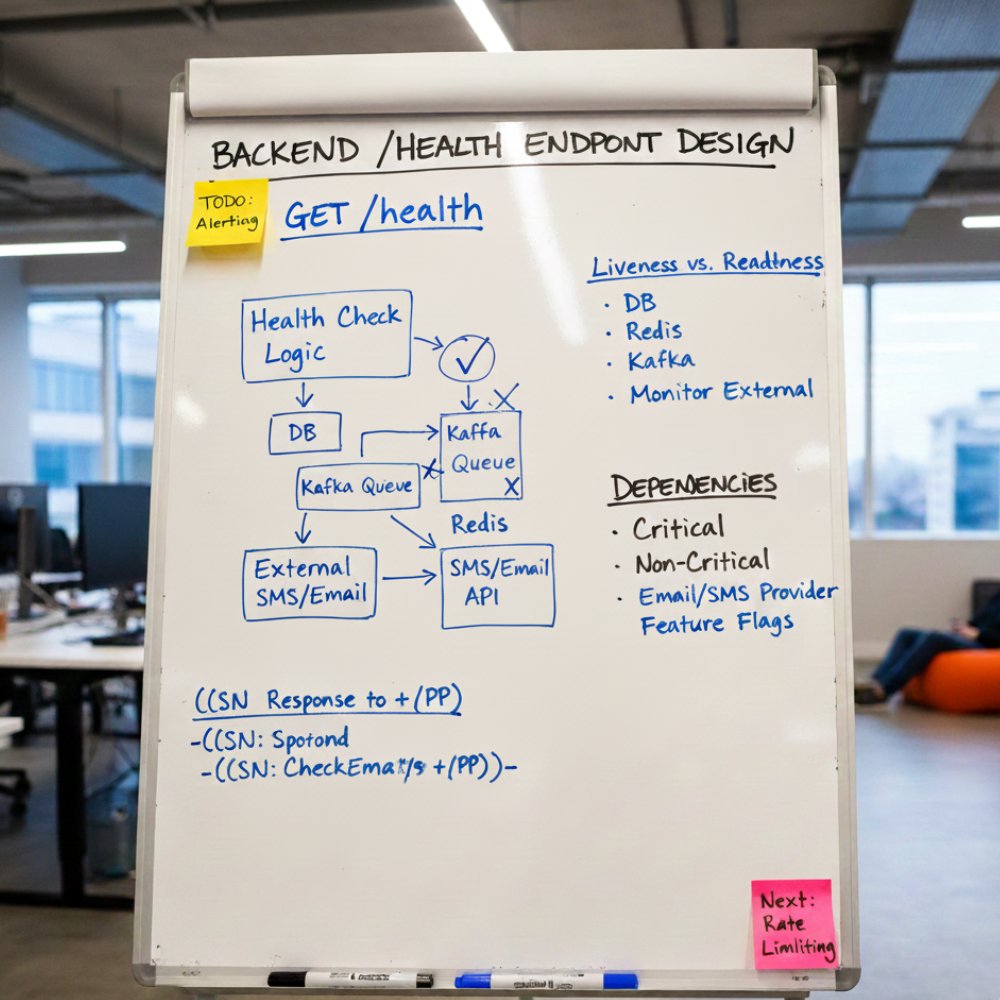 BACKEND /HEALTH ENDPONT DESIGN
TODO:
Alerting
GET /health
Health Check
Logic
DB
Kaffa
Queue
Kafka Queue
Redis
External
SMS/Email
SMS/Email
API
Liveness vs. Readtness
· DB
· Redis
· Kafka
· Monitor External
DEPENDENCIES
· Critical
· Non-Critical
· Email/SMS Provider
Feature Flags
((SN Response to +(PP)
-((SN: Spotond
-((SN: +(PP))-
Next:
Rate
Limliting